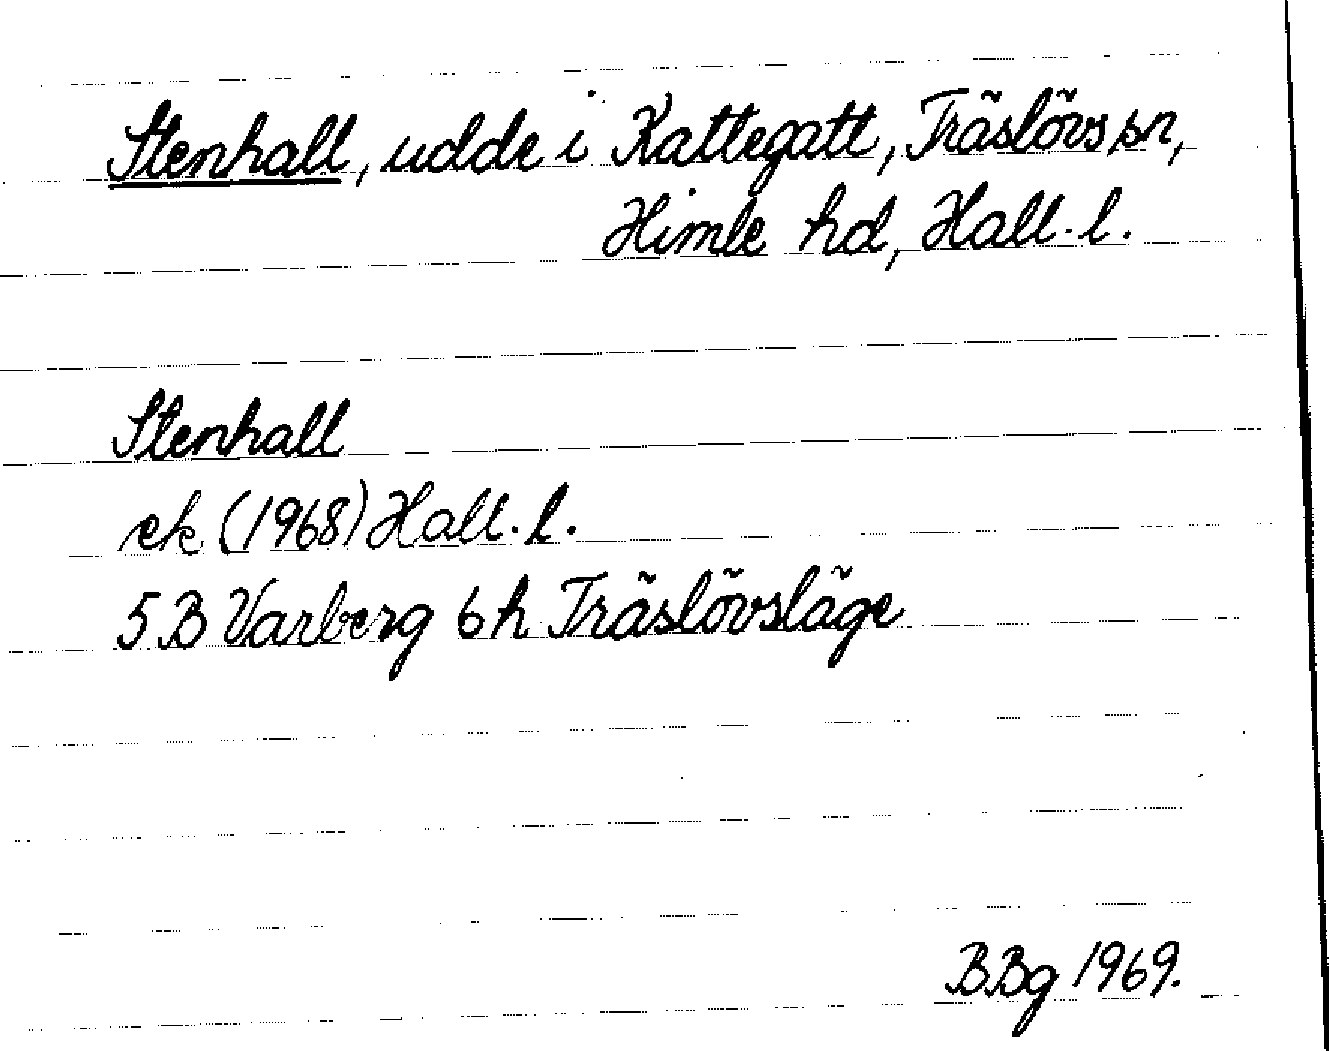 Stenhall, udde i Kattegatt, Träslövs sn,
Himle hd, Hall. l.
Stenhall
ek (1968) Hall. l.
5 B Varberg 6 h Träslövsläge
BBg 1969.